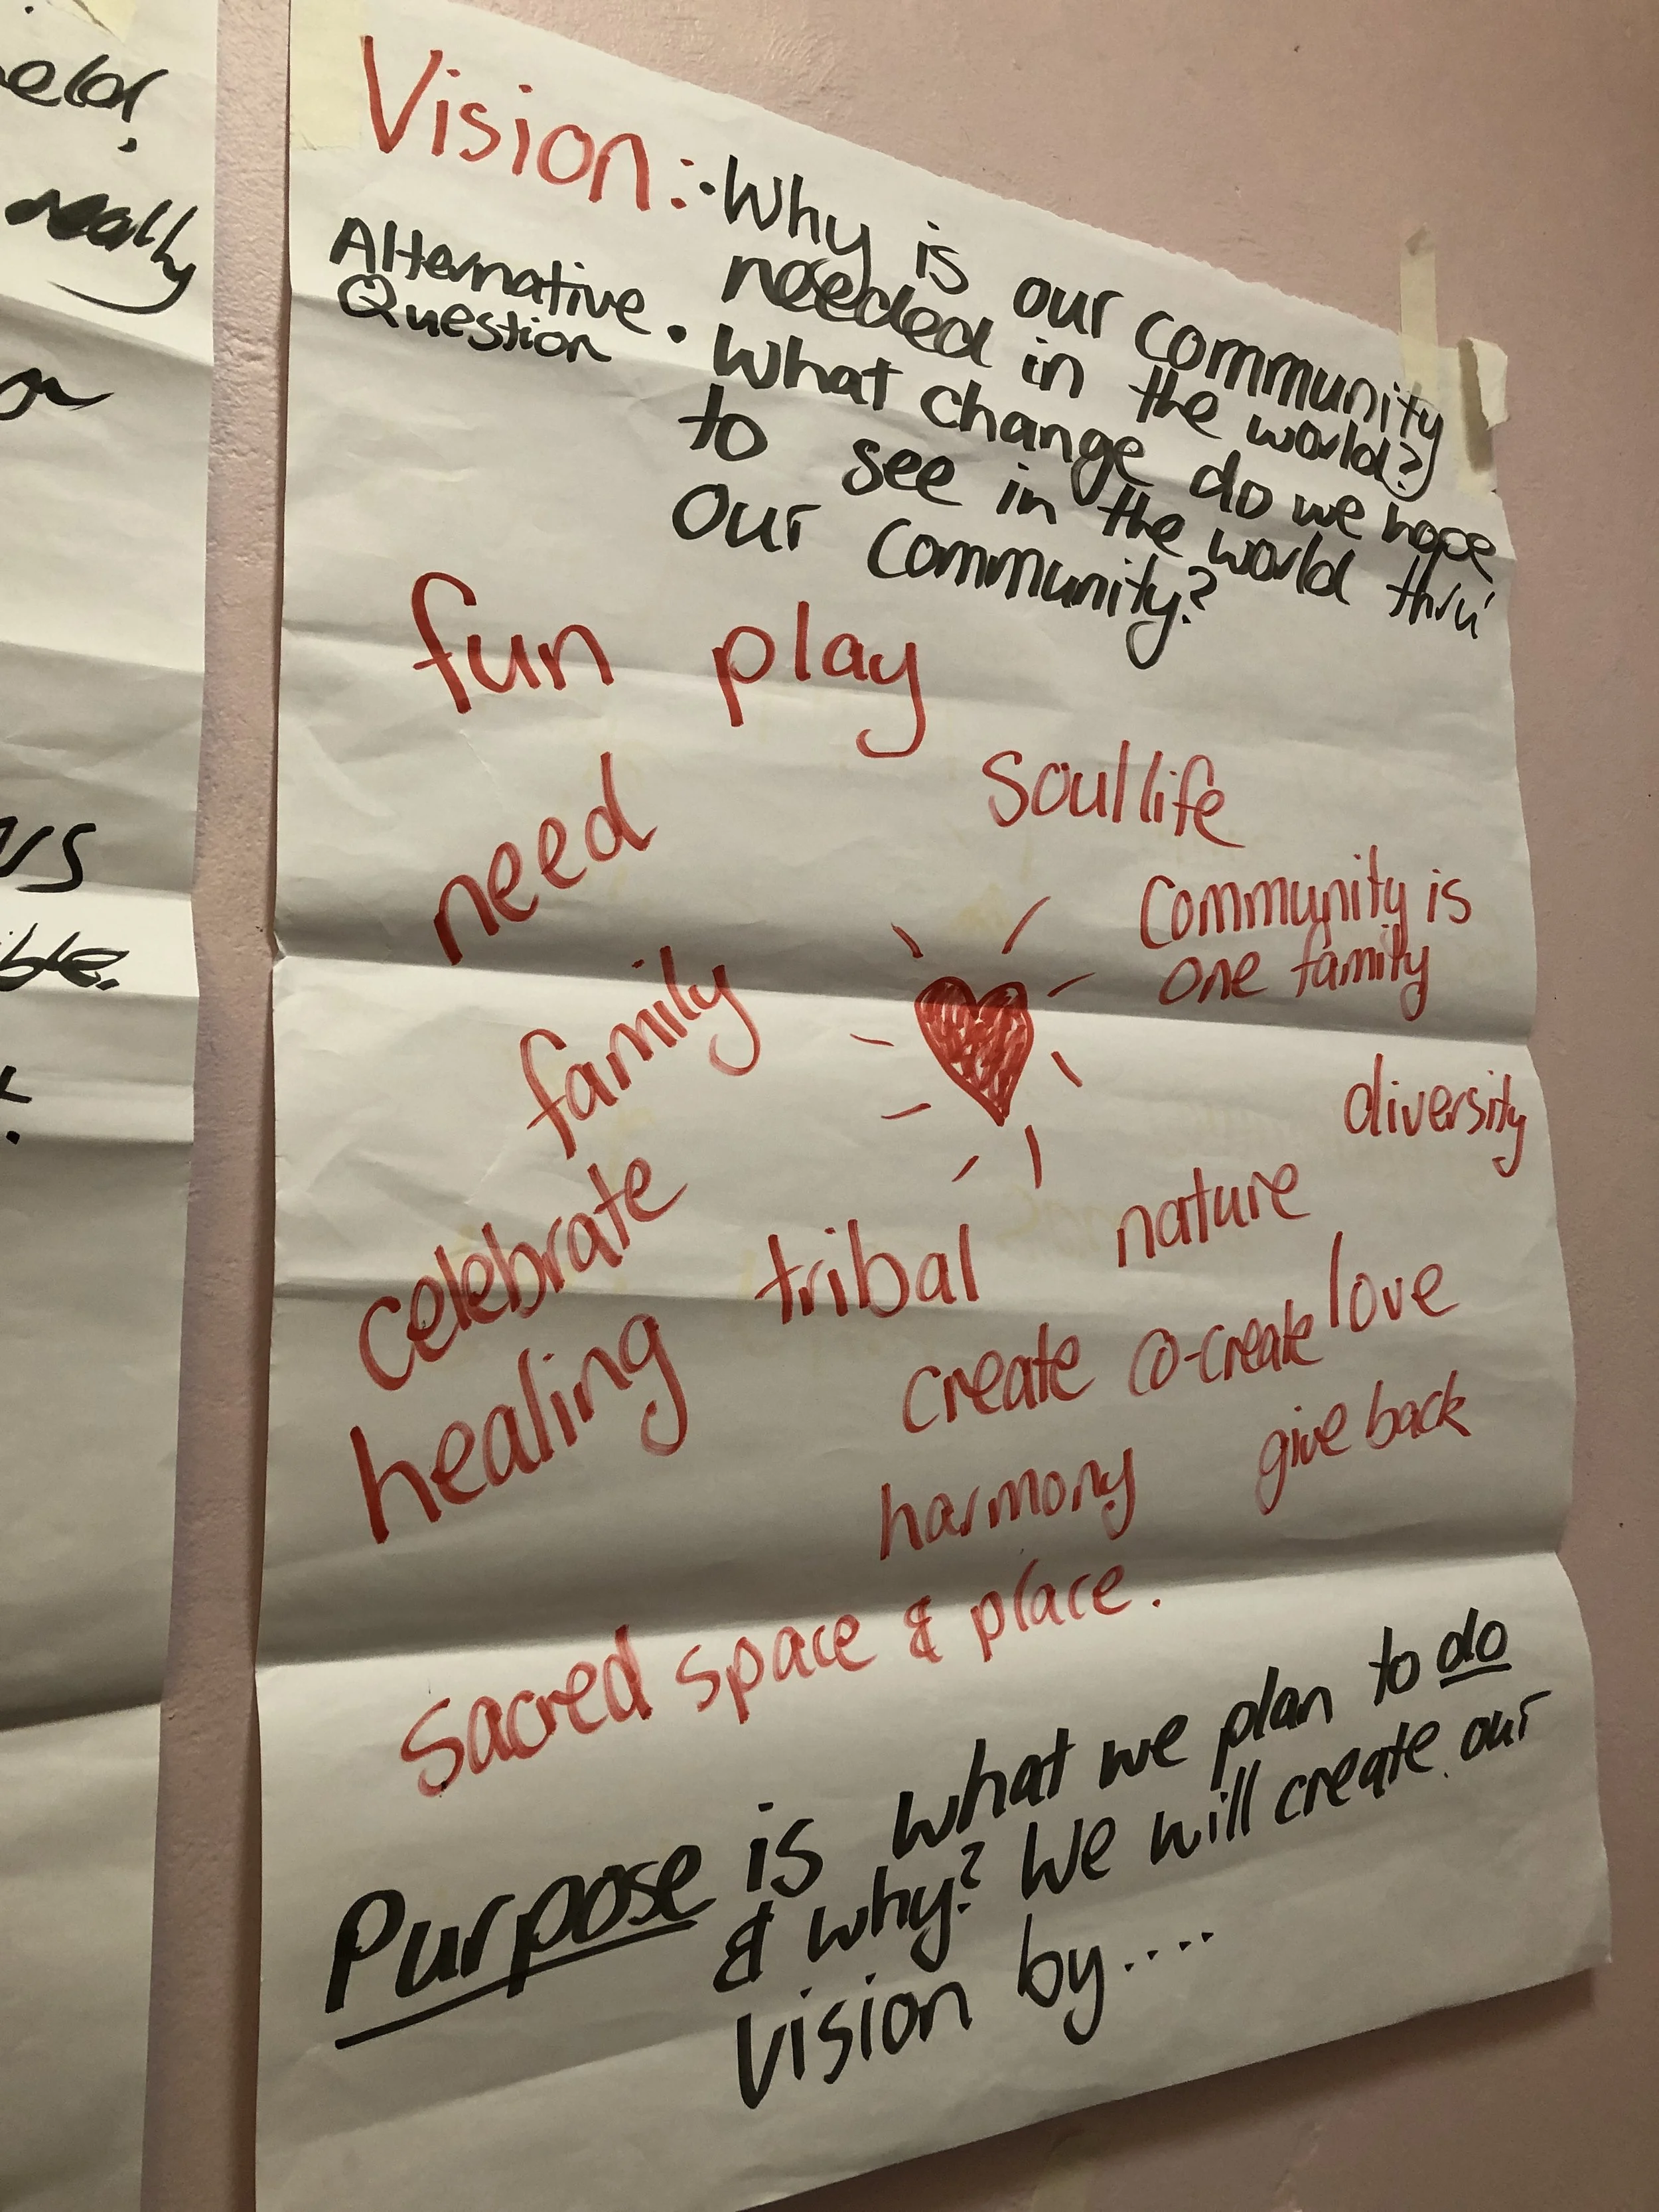 really
Vision: • Why is our community
needed in the world?
Alternative
Question
• What change do we hope
to see in the world thru'
our community?
fun play
soul life
need
Community is
one family
family
diversity
celebrate
tribal
nature
healing
create co-create love
harmony
give back
sacred space & place.
Purpose is what we plan to do
& why? We will create our
vision by....